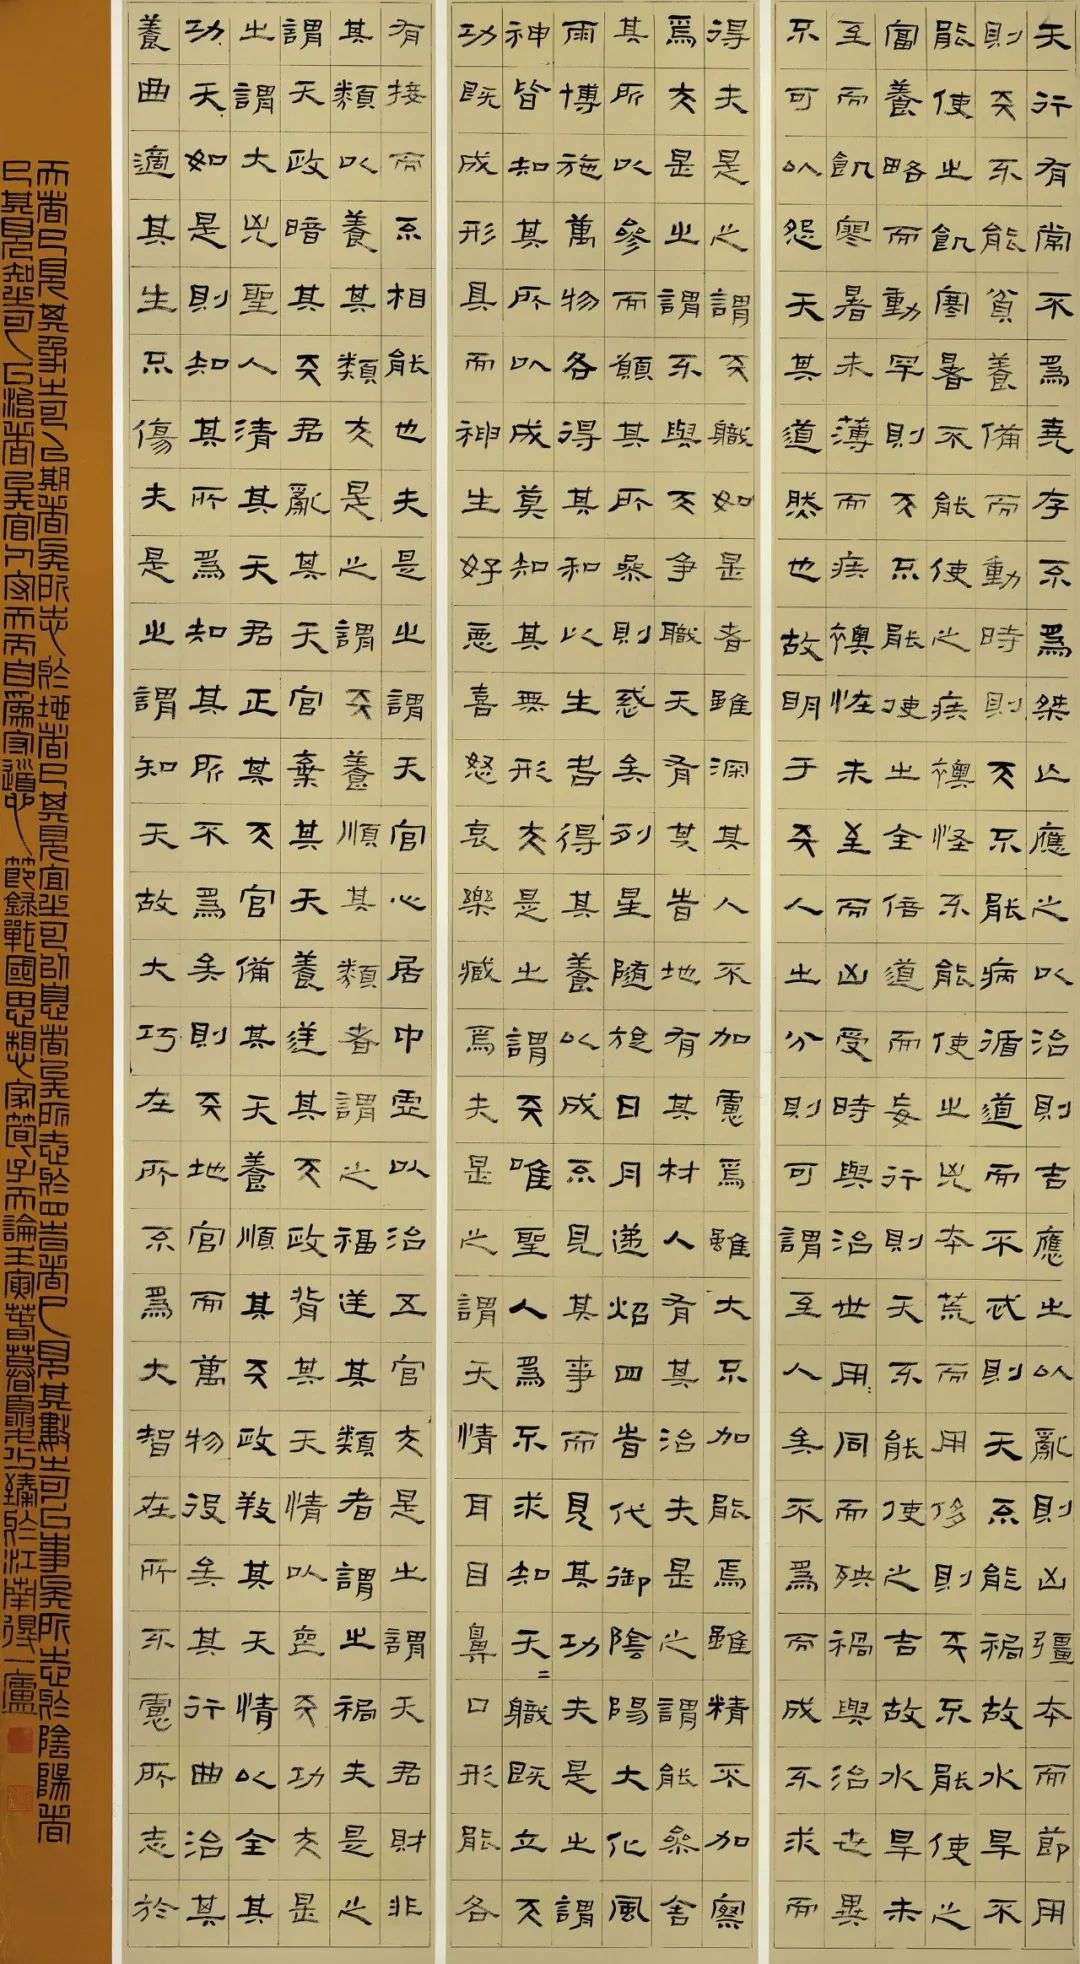 天行有常不爲堯存不爲桀亡應之以治則吉應之以亂則凶彊本而節用
則天不能貧養備而動時則天不能病循道而不忒則天不能禍故水旱不
能使之飢寒暑不能使之疾襖怪不能使之凶本荒而用侈則天不能使之
富養略而動罕則天不能使之全倍道而妄行則天不能使之吉故水旱未
至而飢寒暑未薄而疾襖怪未至而凶受時與治世用同而殃禍與治世異
不可以怨天其道然也故明于天人之分則可謂至人矣不爲而成不求而
得夫是之謂天職如是者雖深其人不加慮焉雖大不加能焉雖精不加察
焉夫是之謂不與天爭職天有其時地有其材人有其治夫是之謂能參舍
其所以參而願其所參則惑矣列星隨旋日月遞炤四時代御陰陽大化風
雨博施萬物各得其和以生者得其養以成不見其事而見其功夫是之謂
神皆知其所以成莫知其無形夫是之謂天唯聖人爲不求知天二職既立天
功既成形具而神生好惡喜怒哀樂臧焉夫是之謂天情耳目鼻口形能各
有接而不相能也夫是之謂天官心居中虛以治五官夫是之謂天君財非
其類以養其類夫是之謂天養順其類者謂之福逆其類者謂之禍夫是之
謂天政暗其天君亂其天官棄其天養逆其天政背其天情以喪天功夫是
之謂大凶聖人清其天君正其天官備其天養順其天政養其天情以全其
功天如是則知其所爲知其所不爲矣則天地官而萬物役矣其行曲治其
養曲適其生不傷夫是之謂知天故大巧在所不爲大智在所不慮所志於
天者已見其象之可以期者矣所志於地者已其見宜之可以息者矣所志於四者者已見其數之可以事矣所志於陰陽者
已其見知之可以治者矣官人守天而自爲守道也節錄戰國思想家荀子天論壬寅暮春臻於江南得一廬